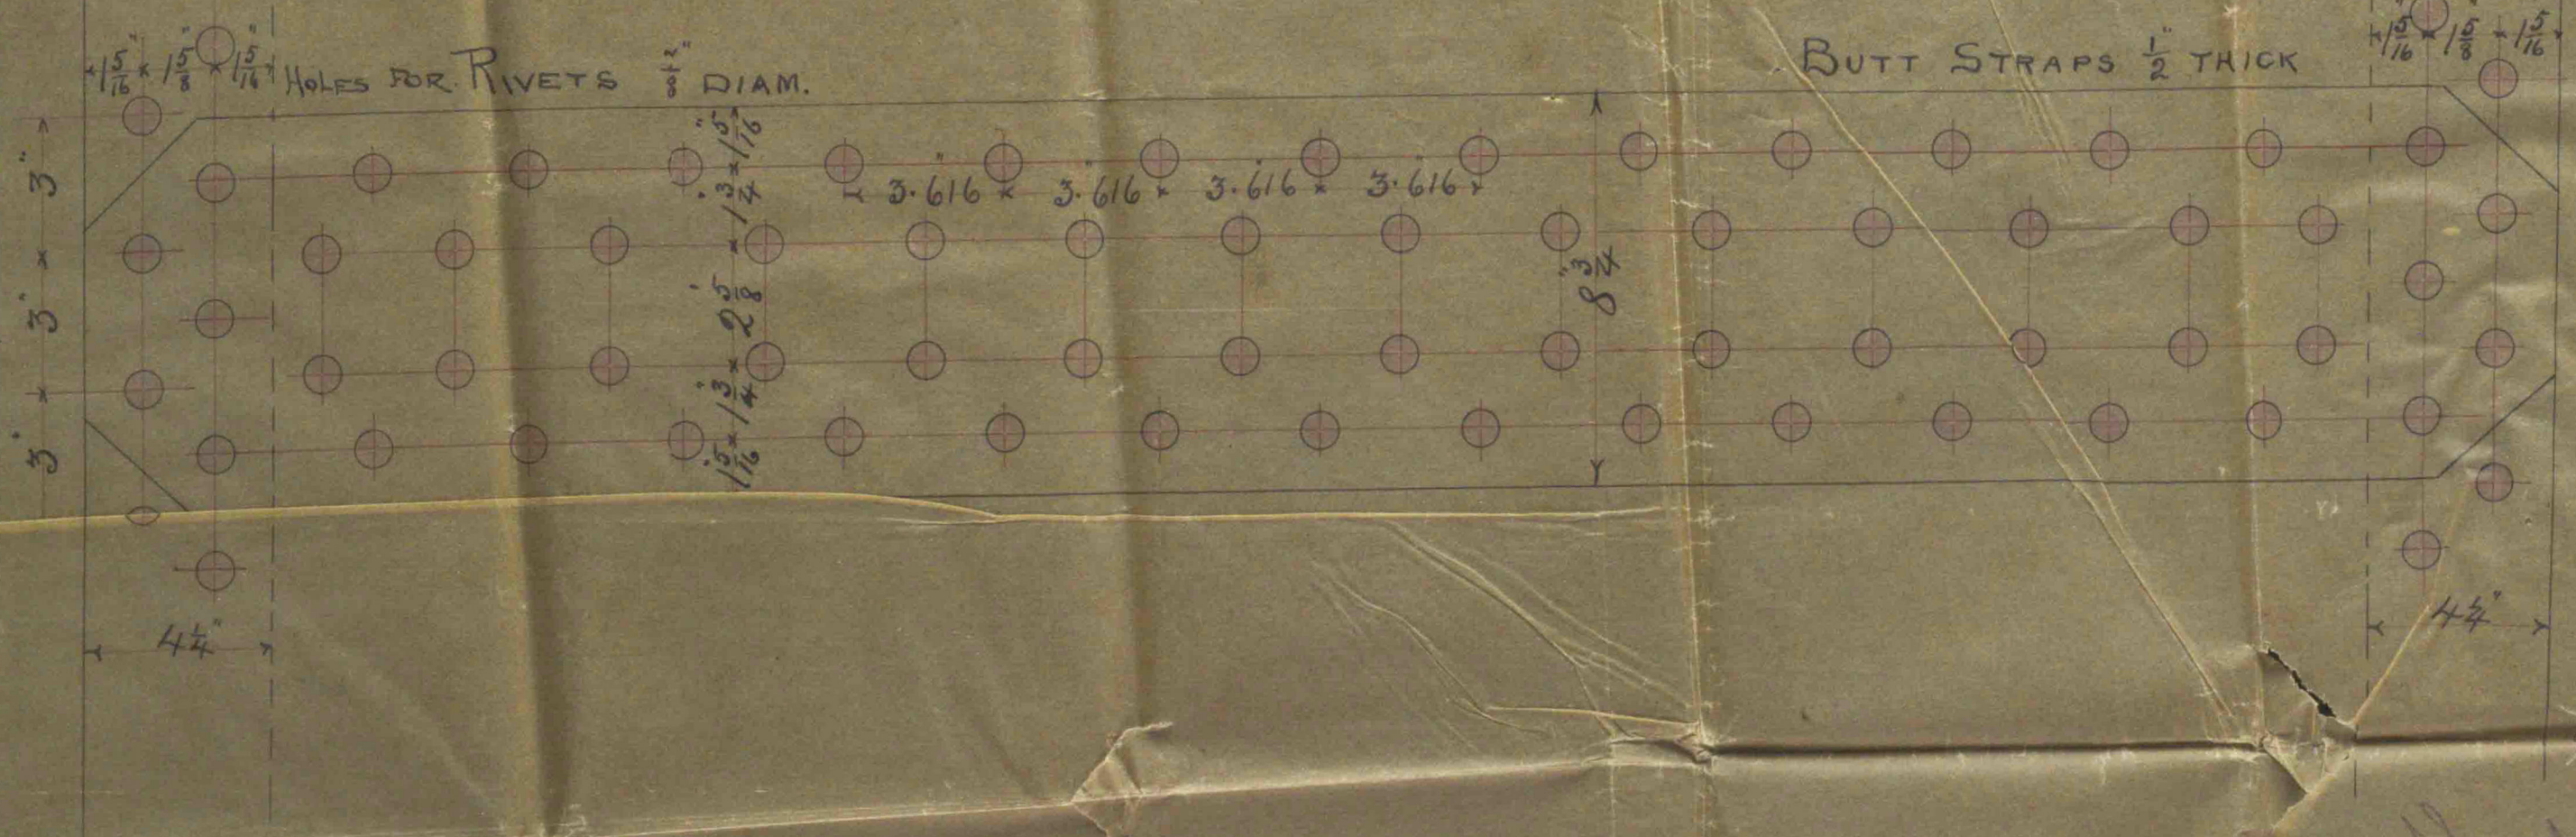 1 5/16" × 1 5/8" × 1 5/16"
HOLES FOR RIVETS 7/8" DIAM.
BUTT STRAPS 1/2" THICK
1 5/16 × 1 5/8 × 1 5/16"
3" × 3" × 3"
1 5/16" × 1 3/4" × 2 5/8" × 1 3/4" × 1 5/16"
3.616" × 3.616" × 3.616" × 3.616"
8 3/4"
4 1/4"
4 1/4"